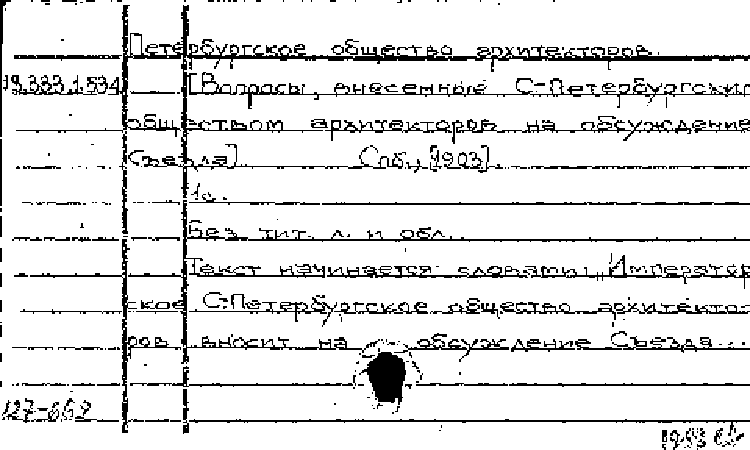 Петербургское общество архитекторов.
19.333.1.534 [Вопросы, внесенные С-Петербургским
обществом архитекторов на обсуждение
Съезда]. Спб., [1903].
1с.
Без тит. л. и обл.
Текст начинается словами: "Император
ское С-Петербургское общество архитекто-
ров вносит на обсуждение Съезда...
127-669